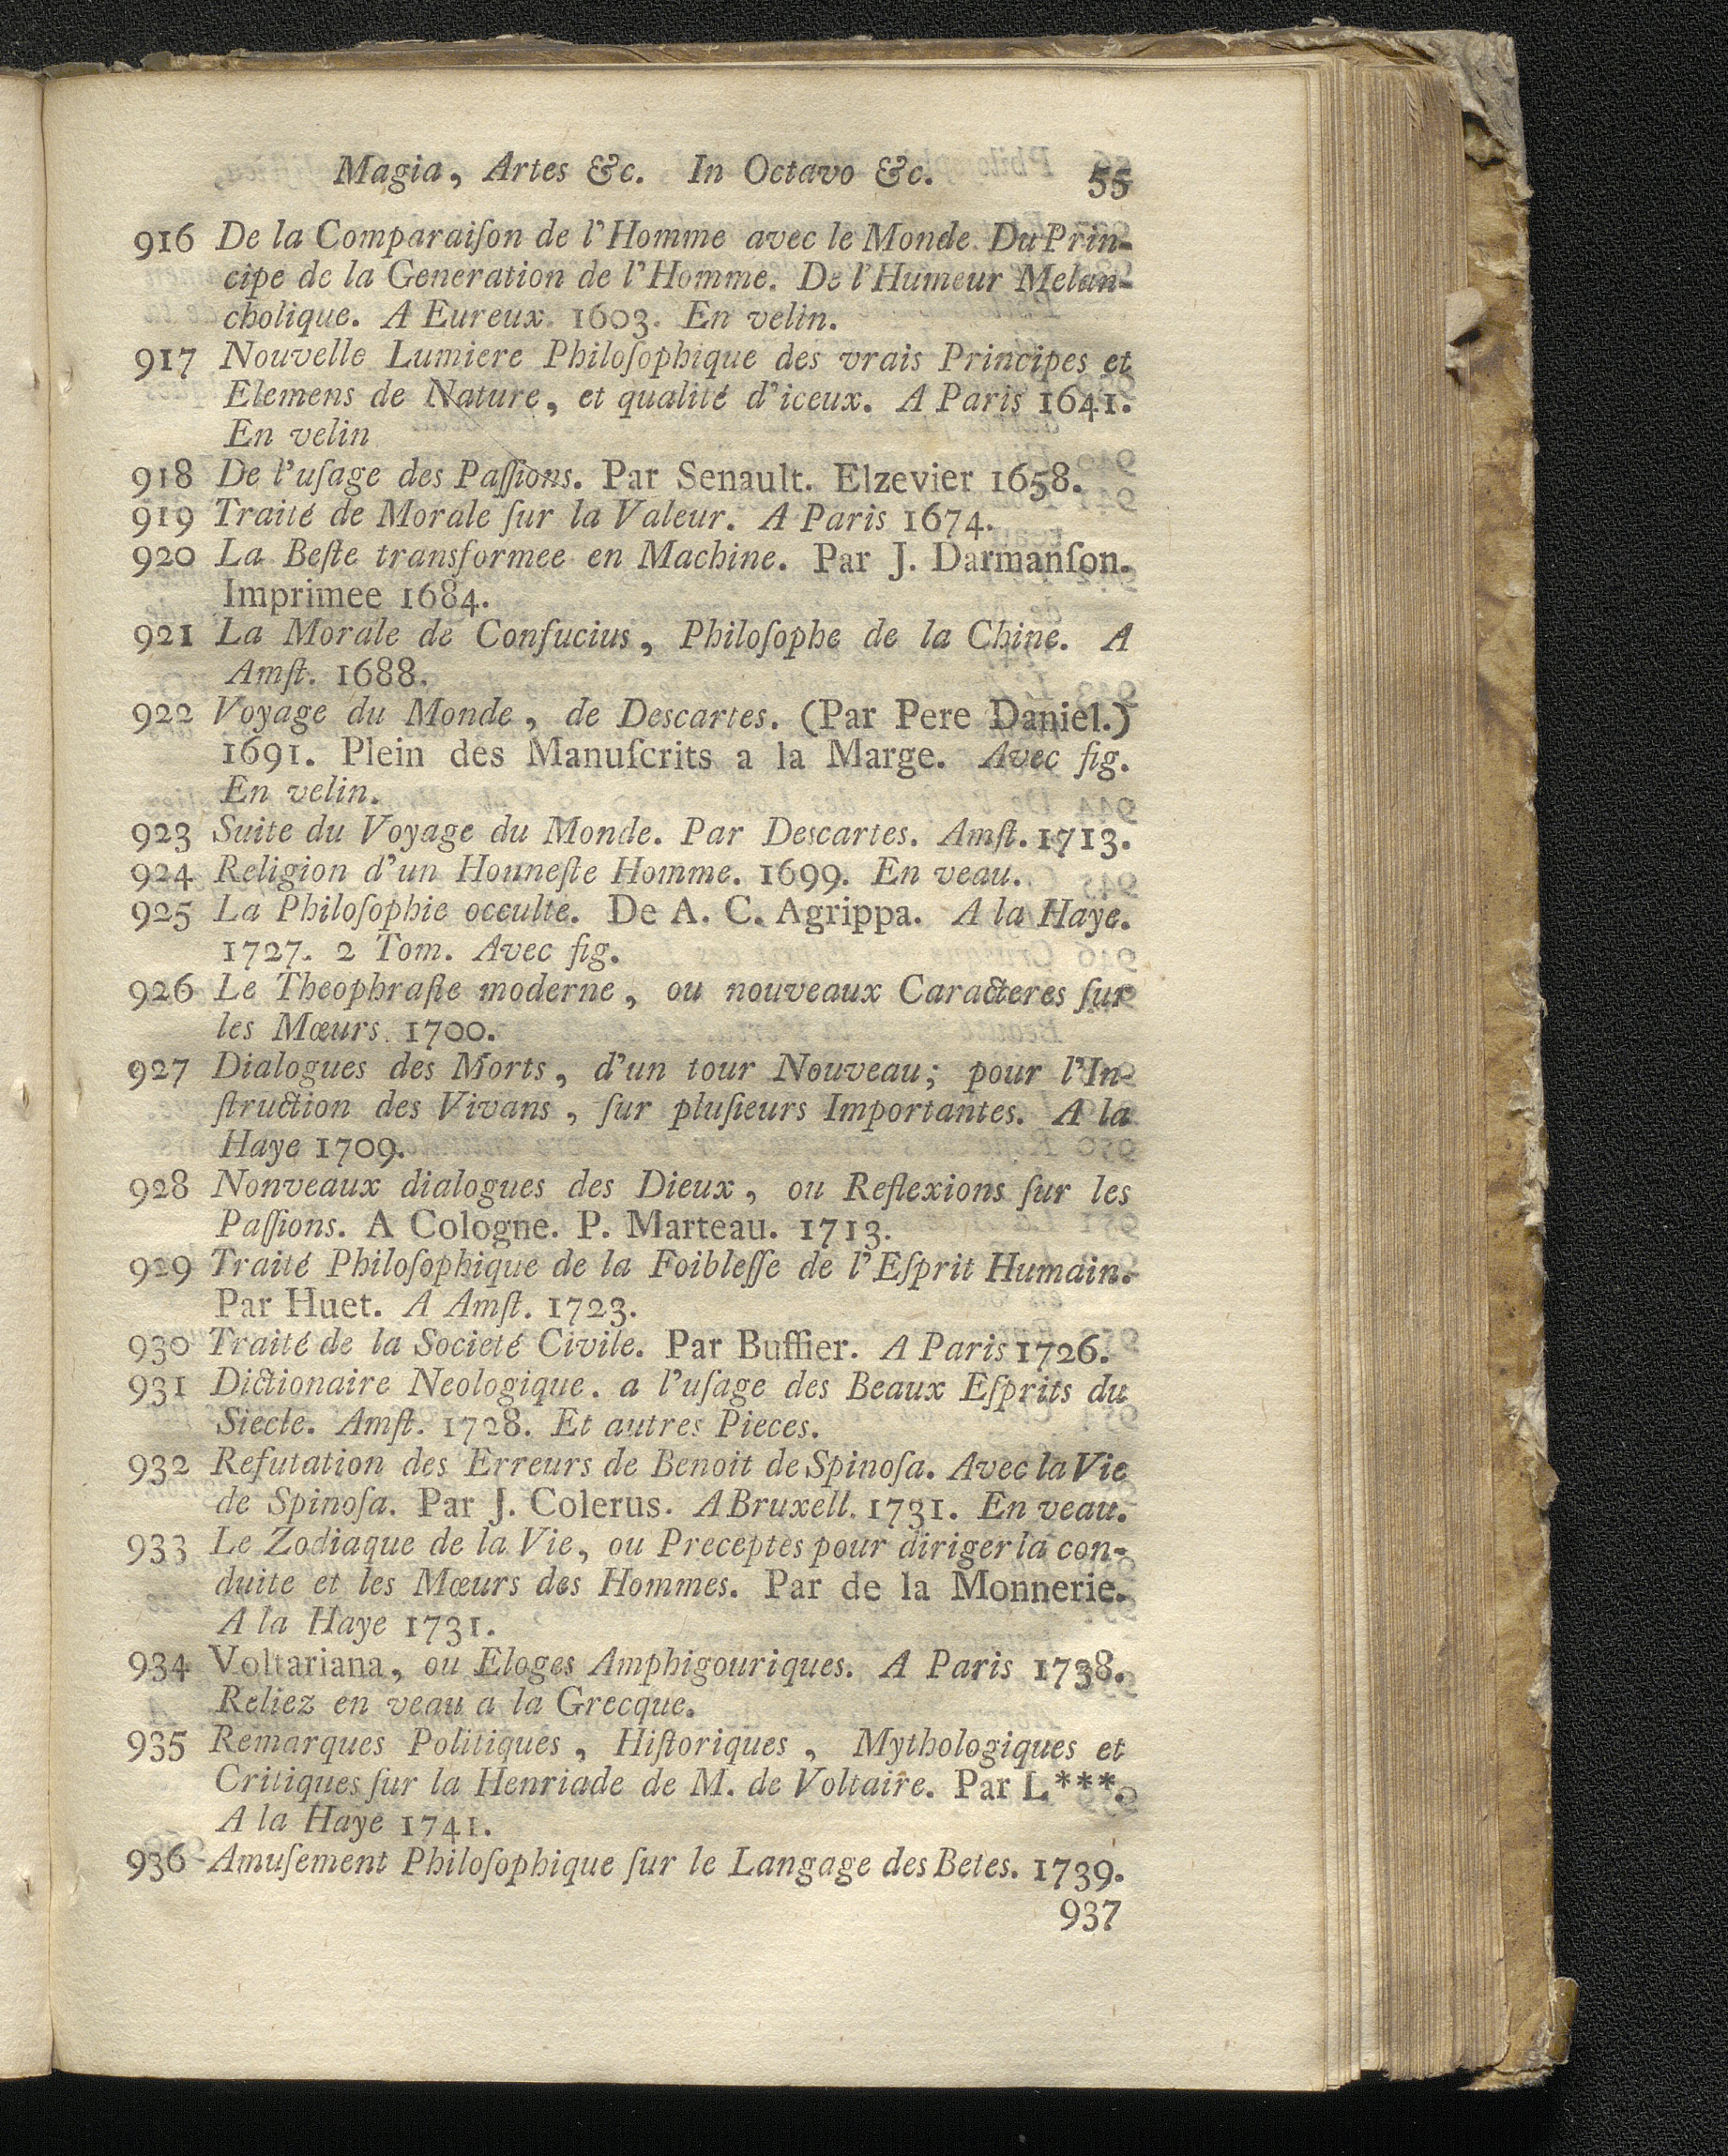 Magia, Artes &c. In Octavo &c. 55
916 De la Comparaiſon de l'Homme avec le Monde. Du Prin-
cipe de la Generation de l'Homme. De l'Humeur Melan-
cholique. A Eureux. 1603. En velin.
917 Nouvelle Lumiere Philoſophique des vrais Principes et
Elemens de Nature, et qualité d'iceux. A Paris 1641.
En velin
918 De l'uſage des Paſſions. Par Senault. Elzevier 1658.
919 Traité de Morale ſur la Valeur. A Paris 1674.
920 La Beſte transformee en Machine. Par J. Darmanſon.
Imprimee 1684.
921 La Morale de Confucius, Philoſophe de la Chine. A
Amſt. 1688.
922 Voyage du Monde, de Descartes. (Par Pere Daniel.)
1691. Plein des Manuſcrits a la Marge. Avec fig.
En velin.
923 Suite du Voyage du Monde. Par Descartes. Amſt. 1713.
924 Religion d'un Honneſte Homme. 1699. En veau.
925 La Philoſophie occulte. De A. C. Agrippa. A la Haye.
1727. 2 Tom. Avec fig.
926 Le Theophraſte moderne, ou nouveaux Caracteres ſur
les Mœurs. 1700.
927 Dialogues des Morts, d'un tour Nouveau; pour l'In-
ſtruction des Vivans, ſur pluſieurs Importantes. A la
Haye 1709.
928 Nonveaux dialogues des Dieux, ou Reflexions ſur les
Paſſions. A Cologne. P. Marteau. 1713.
929 Traité Philoſophique de la Foibleſſe de l'Eſprit Humain.
Par Huet. A Amſt. 1723.
930 Traité de la Societé Civile. Par Buffier. A Paris 1726.
931 Dictionaire Neologique. a l'uſage des Beaux Eſprits du
Siecle. Amſt. 1728. Et autres Pieces.
932 Refutation des Erreurs de Benoit de Spinoſa. Avec la Vie
de Spinoſa. Par J. Colerus. A Bruxell. 1731. En veau.
933 Le Zodiaque de la Vie, ou Preceptes pour diriger la con-
duite et les Mœurs des Hommes. Par de la Monnerie.
A la Haye 1731.
934 Voltariana, ou Eloges Amphigouriques. A Paris 1738.
Reliez en veau a la Grecque.
935 Remarques Politiques, Hiſtoriques, Mythologiques et
Critiques ſur la Henriade de M. de Voltaire. Par L***.
A la Haye 1741.
936 Amuſement Philoſophique ſur le Langage des Betes. 1739.
937